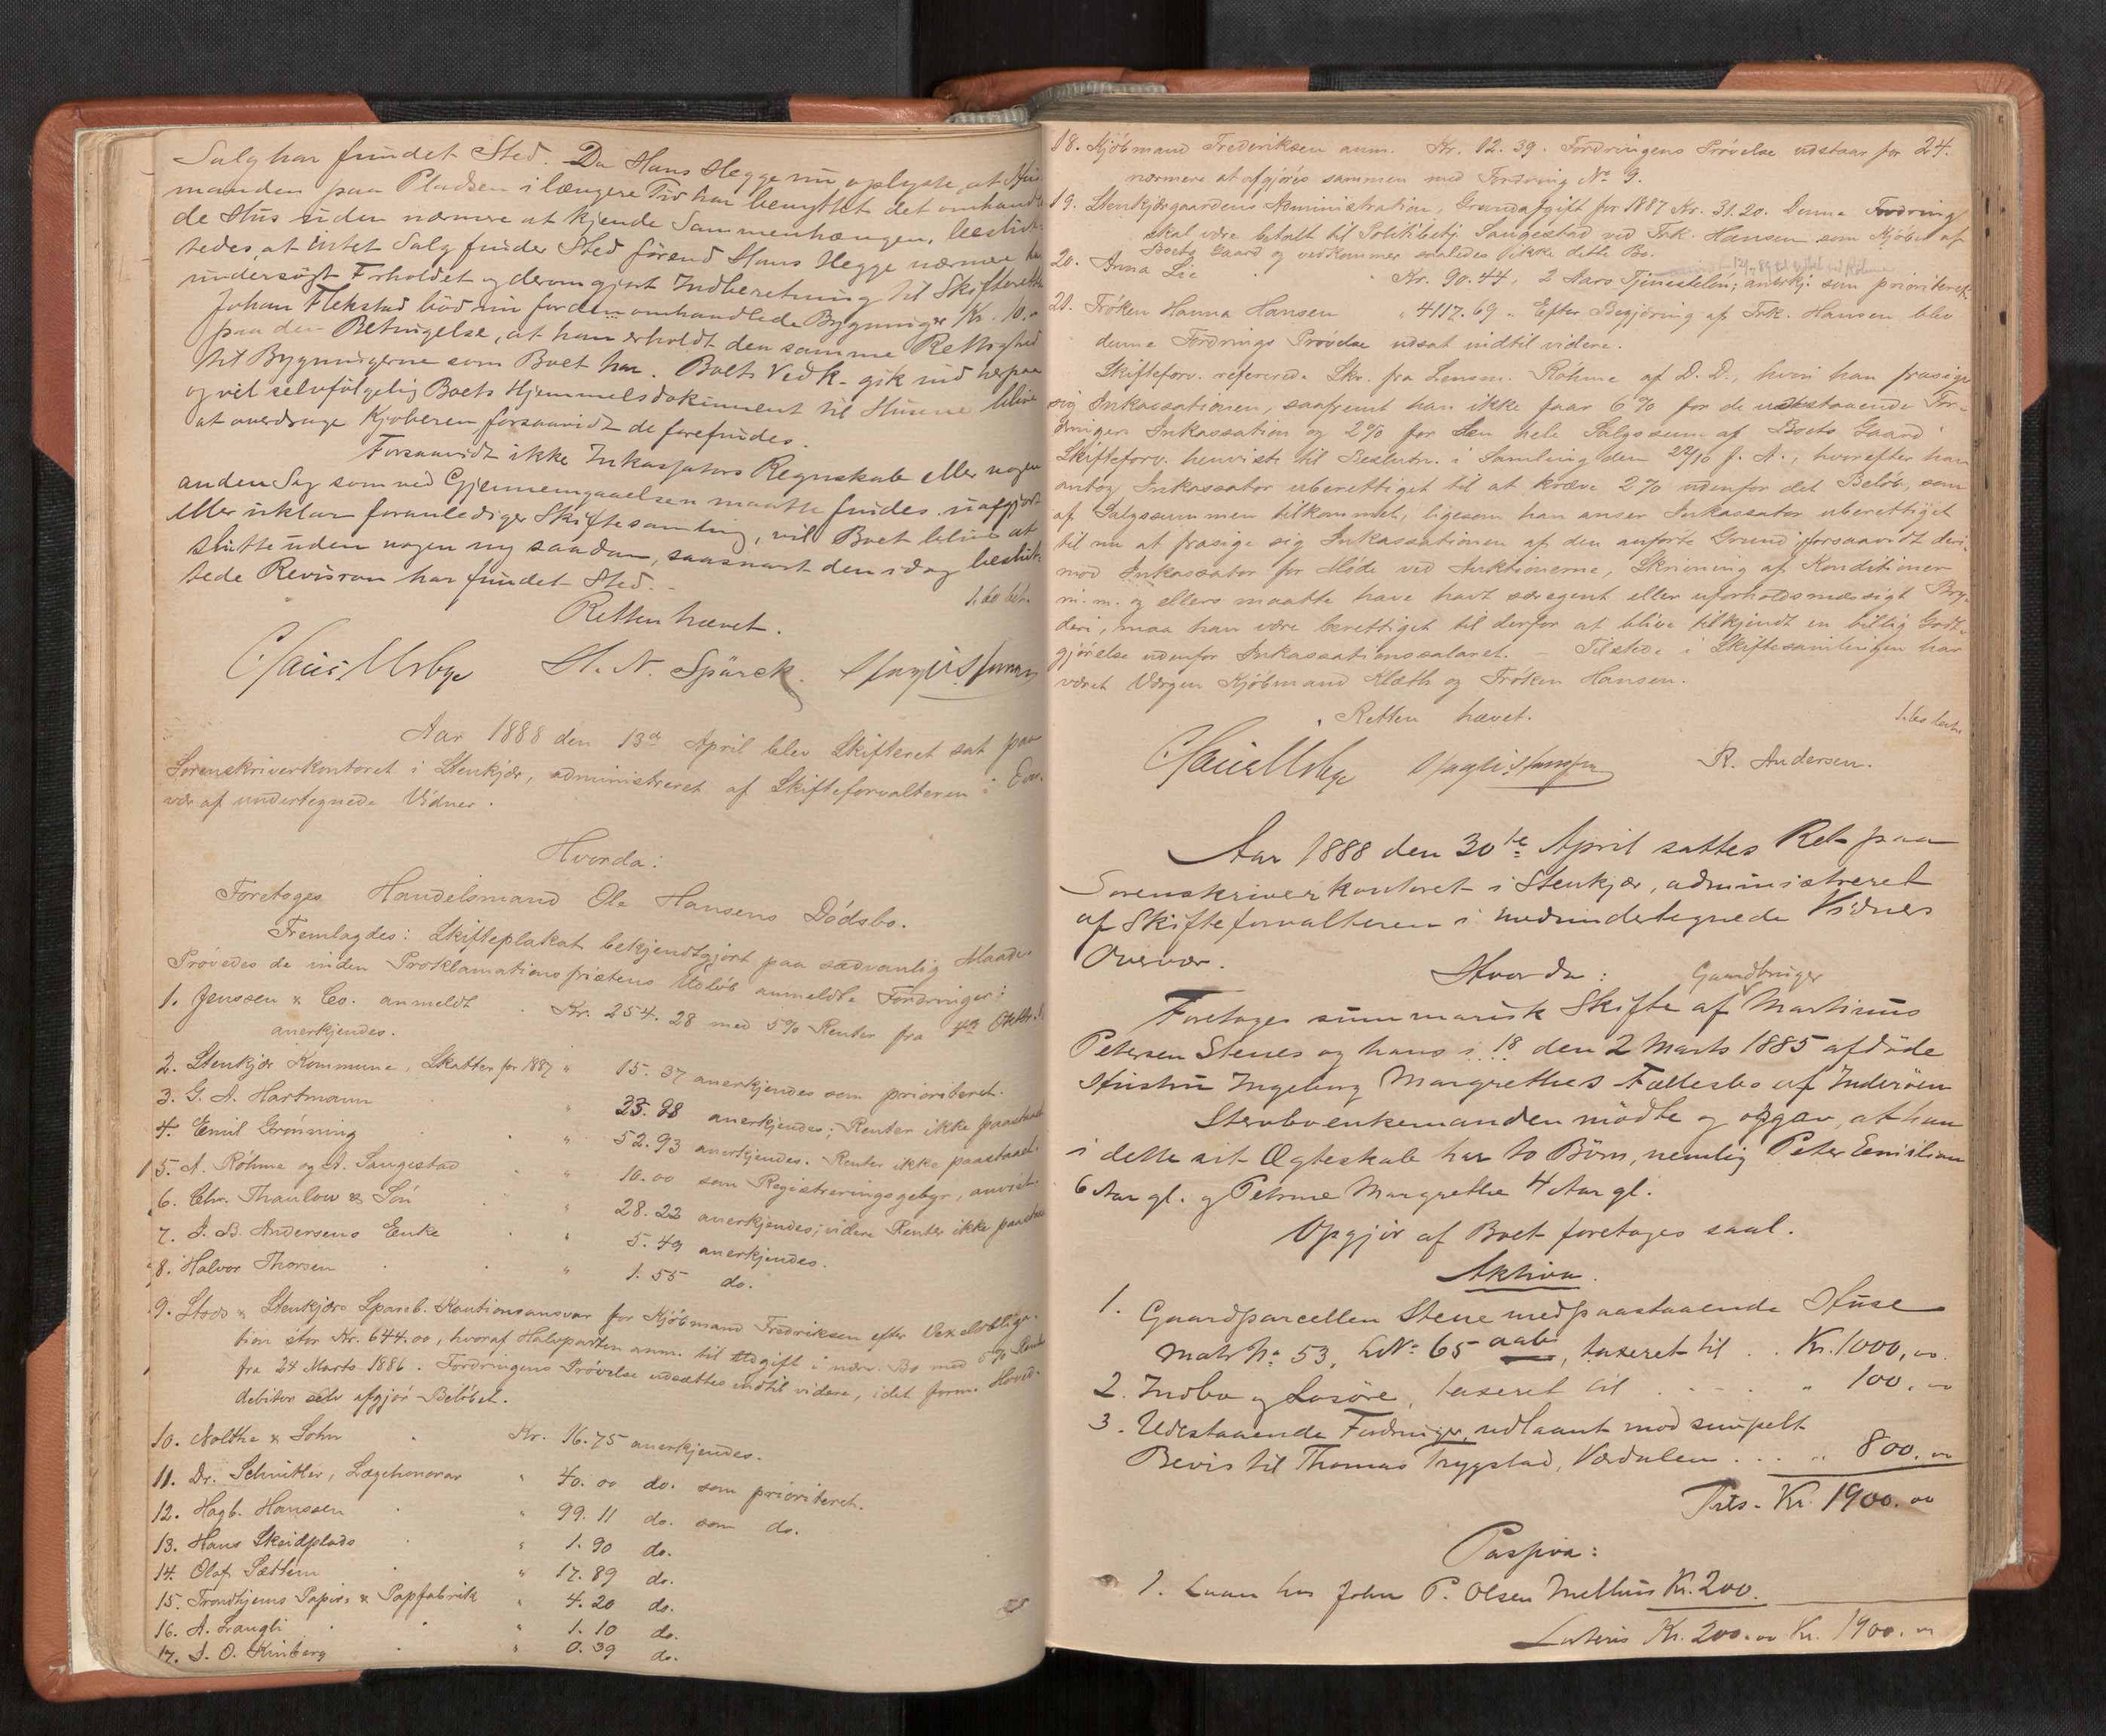 Salg har fundet Sted. Da Hans Hegge nu oplyste, at Hus
manden paa Pladsen i længere Tid har benyttet det omhand
de Hus uden nærmere at kjende Sammenhængen, beslut
tedes, at intet Salg finder Sted førend Hans Hegge nærmere har
undersøgt Forholdet og derom gjort Indberetning til Skifteretten
Johan Flekstad bød nu for den omhandlede Bygninger Kr. 10.00
paa den Betingelse, at han erholdt den samme Rettighed
til Bygningerne som Boet har. Boets Vedk. gik ind herpaa
og vil selvfølgelig Boets Hjemmelsdokument til Husene blive
at overdrage Kjøberen forsaavidt de forefindes.
Forsaavidt ikke Inkassators Regnskab eller nogen
anden Sag som ved Gjennemgaaelsen maatte findes uafgjort
eller uklar foranlediger Skiftesamling, vil Boet blive at
slutte uden nogen ny saadan, saasnart den idag beslut-
tede Revision har fundet Sted. -
Retten hævet.
1.60 bet.
H. N. Spårck.
Aar 1888 den 13d April blev Skifteret sat paa
Sorenskriverkontoret i Stenkjær, administreret af Skifteforvalteren i Over-
vær af undertegnede Vidner.
Hvorda:
Foretoges Handelsmand Ole Hansens Dødsbo.
Fremlagdes: Skifteplakat bekjendtgjort paa sædvanlig Maade.
Prøvedes de inden Proklamationsfristens Udløb anmeldte Fordringer:
1. Jenssen & Co. anmeldt Kr. 254.28 med 5% Renter fra 4de Oktbr.
anerkjendes.
2. Stenkjær Kommune, Skatter for 1887 " 15.37 anerkjendes som prioriteret.
3. G. A. Hartmann " 23.98 anerkjendes; Renter ikke paastaaet
4. Emil Grønning " 52.93 anerkjendes. Renter ikke paastaaet.
5. A. Røhme og A. Langestad " 10.00 som Registreringsgebyr, anvist.
6. Chr. Thaulow & Søn " 28.23 anerkjendes; videre Renter ikke paastaaet
7. J. B. Andersens Enke " 5.49 anerkjendes.
8. Halvor Thorsen " 1.55 do.
9. Stods & Stenkjærs Spareb. Kautionsansvar for Kjøbmand Fredriksen efter Vexelobliga-
tion stor Kr. 644.00, hvoraf Halvparten anm. til Udgift i nærv. Bo med 6% Renter
fra 24 Marts 1886. Fordringens Prøvelse udsættes indtil videre, idet form. Hoved-
debitor selv afgjør Beløbet.
10. Nolthe & Sohn Kr. 16.75 anerkjendes.
11. Dr. Schnitler, Lægehonorar " 40.00 do. som prioriteret.
12. Hagb. Hanssen " 99.11 do. som do.
13. Hans Skeidplads " 1.90 do.
14. Olaf Sættem " 17.89 do.
15. Trondhjems Papir- & Papfabrik " 4.20 do.
16. A. Langli " 1.10 do.
17. J. O. Kinberg " 0.39 do.
24.
18. Kjøbmand Frederiksen anm. Kr. 12.39. Fordringens Prøvelse udstaar for
nærmere at afgjøres sammen med Fordring No 9.
19. Stenkjærgaardens Administration, Grundafgift for 1887 Kr. 31.20. Denne Fordring
skal være betalt til Politibetj. Langestad ved Frk. Hansen som Kjøber af
Boets Gaard og vedkommer saaledes ikke dette Bo.
20. Anna Lie Kr. 90.44, 2 Aars Tjenesteløn; anerkj. som prioriteret.
21. Frøken Hanna Hansen " 4117.69. Efter Begjæring af Frk. Hansen blev
denne Fordrings Prøvelse udsat indtil videre.
Skifteforv. refererede Skr. fra Lensm. Røhme af D. D., hvori han frasiger
sig Inkassationen, saafremt han ikke faar 6% for de udestaaende For-
dringers Inkassation og 2% for den hele Salgssum af Boets Gaard.
Skifteforv. henviste til Beslutn. i Samling den 22/10 f. A., hvorefter han
antog Inkassator uberettiget til at kræve 2% udenfor det Beløb, som
af Salgssummen tilkommet, ligesom han anser Inkassator uberettiget
til nu at frasige sig Inkassationen af den anførte Grund; forsaavidt deri-
mod Inkassator for Møde ved Auktionerne, Skrivning af Konditioner
m. m. og ellers maatte have havt særegent eller uforholdsmæssigt Bry-
deri, maa han være berettiget til derfor at blive tilkjendt en billig Godt-
gjørelse udenfor Inkassationssalaret. - Tilstede i Skiftesamlingen har
været Værgen Kjøbmand Klæth og Frøken Hansen.
Retten hævet.
R. Andersen.
Aar 1888 den 30te April sattes Ret paa
Sorenskriverkontoret i Stenkjær, administreret
af Skifteforvalteren i medundertegnede Vidners
Overvær.
Hvorda:
Foretoges summarisk Skifte af Gaardbruger Martinus
Petersen Stenes og hans i 18 den 2 Marts 1885 afdøde
Hustru Ingeborg Margrethes Fællesbo af Inderøen
Stervboenkemanden mødte og opgav, at han
i dette sit Ægteskab har to Børn, nemlig Peter Emilian
6 Aar gl. og Petrine Margrethe 4 Aar gl.
Opgjør af Boet foretoges saal.
Aktiva.
1. Gaardparcellen Stene med paastaaende Huse
Matr No 53, LNo 65 aab, taxeret til . . Kr. 1000,00
2. Indbo og Løsøre, taxeret til . . . . " 100.00
3. Udestaaende Fordringer, udlaant mod simpelt
Bevis til Thomas Trygstad, Værdalen . . . " 800.00
Tils. Kr. 1900.00
Passiva:
1. Laan hos John P. Olsen Melhus Kr. 200.
Lateris Kr. 200.00 Kr. 1900.00